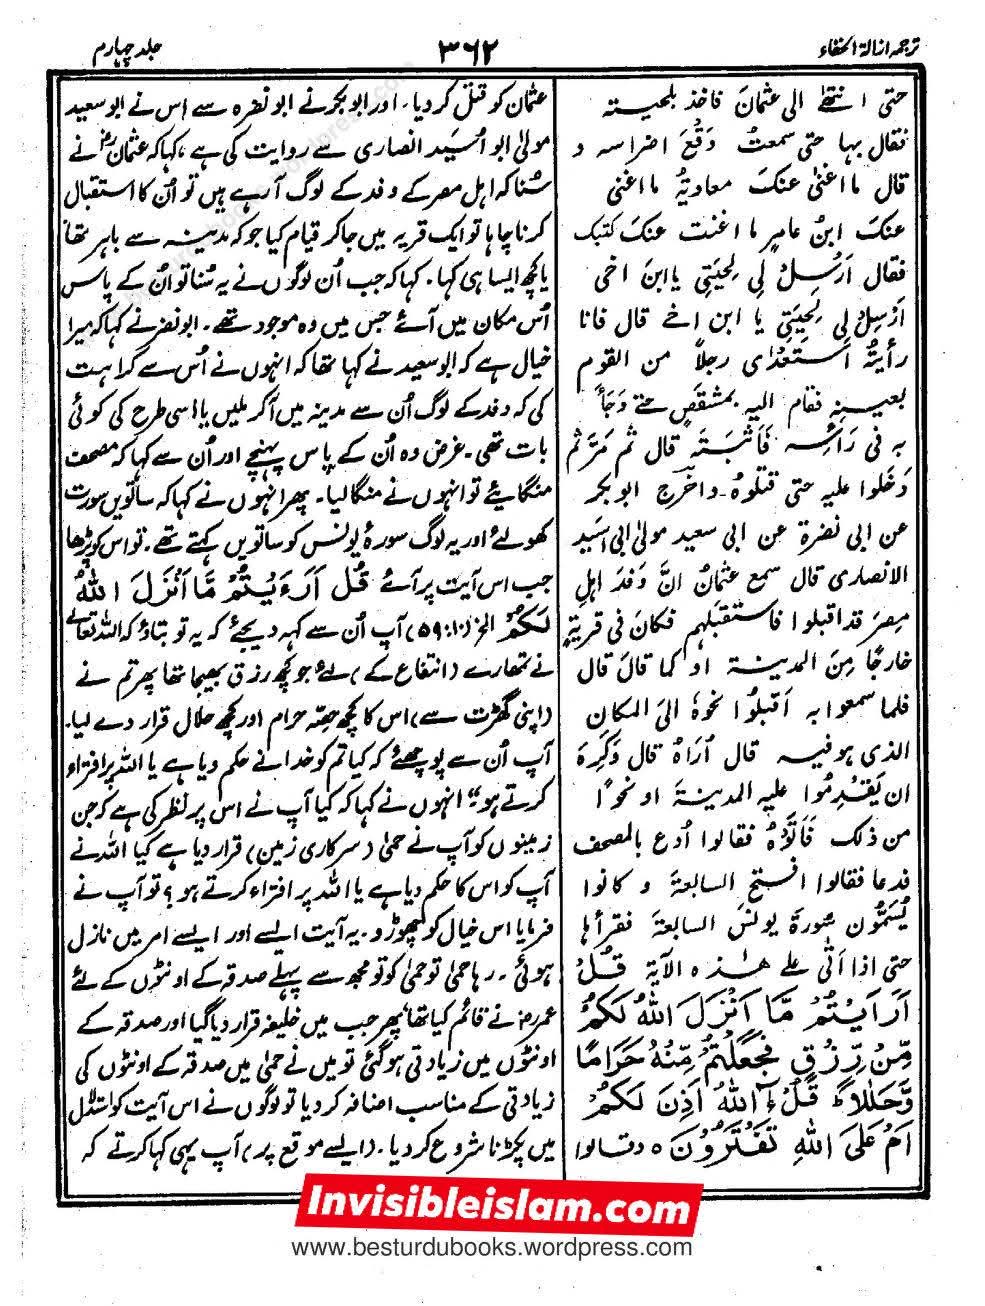 ترجمہ ازالۃ الخفاء
۳۶۲
جلد چہارم
حتی انتھٰے الی عثمانَ فاخذ بلحیتہ
فقال بہا حتی سمعتُ وَقْعَ اضراسہ و
قال ما اغنیٰ عنکَ معاویۃُ ما اغنی
عنکَ ابنُ عامرٍ ما اغنت عنکَ کتبک
فقال اَرْسِلْ لی لِحیَتِی یا ابنَ اخی
اَرْسِلْ لی لِحیَتِی یا ابن اخے قال فانا
رأیتُہٗ استعدٰی رجلاً من القوم
بعینہٖ فقام الیہ بمشقصٍ حتے وَجَأَ
بہ فی رَاْسِہٖ فَاَثبتَہٗ قال ثم مَرَّ ثم
دخلوا علیہ حتی قتلوہ۔ واخرج ابوبکر
عن ابی نضرۃ عن ابی سعید مولیٰ ابی اُسَید
الانصاری قال سمع عثمانُ انَّ وَفدَ اہلِ
مصرَ قد اقبلوا فاستقبلہم فکانَ فی قریۃٍ
خارجًا مِنَ المدینۃ او کما قالَ قال
فلما سمعوا بہ اَقبلُوا نحوَہٗ الیَ المکانِ
الذی ہو فیہ قال اُرَاہُ قال وَکَرِہَ
ان یَقْدِمُوا علیہ المدینۃَ او نحوًا
من ذٰلک فَاَتَوہُ فقالوا اُدع بالمصحف
فدعا فقالوا افتح السابعۃَ و کانوا
یُسَمُّون سُورۃَ یونسَ السابعۃَ فقرأہا
حتی اذا اَتٰی علے ھٰذہ الآیۃ قُلْ
اَرَاَيْتُمْ مَّا اَنْزَلَ اللّٰهُ لَكُمْ
مِّنْ رِّزْقٍ فَجَعَلْتُمْ مِّنْهُ حَرَامًا
وَّحَلٰلًا ؕ قُلْ ءٰٓاللّٰهُ اَذِنَ لَكُمْ
اَمْ عَلَى اللّٰهِ تَفْتَرُوْنَ ہ وقالوا
عثمان کو قتل کر دیا۔ اور ابوبکر نے ابونضرہ سے اس نے ابوسعید
مولیٰ ابو اُسَید انصاری سے روایت کی ہے، کہا کہ عثمانؓ نے
سُنا کہ اہل مصر کے وفد کے لوگ آ رہے ہیں تو اُن کا استقبال
کرنا چاہا تو ایک قریہ میں جا کر قیام کیا جو کہ مدینہ سے باہر تھا
یا کچھ ایسا ہی کہا۔ کہا کہ جب اُن لوگوں نے یہ سُنا تو اُن کے پاس
اُس مکان میں آئے جس میں وہ موجود تھے۔ ابونضرہ نے کہا کہ میرا
خیال ہے کہ ابوسعید نے کہا تھا کہ انہوں نے اُس سے کراہت
کی کہ وفد کے لوگ اُن سے مدینہ میں آکر ملیں یا اسی طرح کی کوئی
بات تھی۔ غرض وہ اُن کے پاس پہنچے اور اُن سے کہا کہ مصحف
منگائیے تو انہوں نے منگا لیا۔ پھر انہوں نے کہا کہ ساتویں سورت
کھولئے اور یہ لوگ سورۂ یونس کو ساتویں کہتے تھے۔ تو اس کو پڑھا
جب اس آیت پر آئے قُلْ اَرَءَيْتُمْ مَّآ اَنْزَلَ اللّٰهُ
لَكُمْ الخ (۱۰: ۵۹) آپ اُن سے کہہ دیجئے کہ یہ تو بتاؤ کہ اللہ تعالے
نے تمھارے (انتفاع کے) لئے جو کچھ رزق بھیجا تھا پھر تم نے
(اپنی گھڑت سے) اس کا کچھ حصّہ حرام اور کچھ حلال قرار دے لیا۔
آپ اُن سے پوچھئے کہ کیا تم کو خدا نے حکم دیا ہے یا اللہ پر افتراء
کرتے ہو“ انہوں نے کہا کہ کیا آپ نے اس پر نظر کی ہے کہ جن
زمینوں کو آپ نے حمیٰ (سرکاری زمین) قرار دیا ہے کیا اللہ نے
آپ کو اس کا حکم دیا ہے یا اللہ پر افتراء کرتے ہو؟ تو آپ نے
فرمایا اس خیال کو چھوڑو۔ یہ آیت ایسے اور ایسے امر میں نازل
ہوئی۔ رہا حمیٰ تو حمیٰ کو تو مجھ سے پہلے صدقہ کے اونٹوں کے لئے
عمرؓ نے قائم کیا تھا پھر جب میں خلیفہ قرار دیا گیا اور صدقہ کے
اونٹوں میں زیادتی ہوگئی تو میں نے حمیٰ میں صدقہ کے اونٹوں کی
زیادتی کے مناسب اضافہ کر دیا تو لوگوں نے اس آیت کو استدلال
میں پکڑنا شروع کر دیا۔ (ایسے موقع پر) آپ یہی کہا کرتے کہ
Invisibleislam.com
www.besturdubooks.wordpress.com